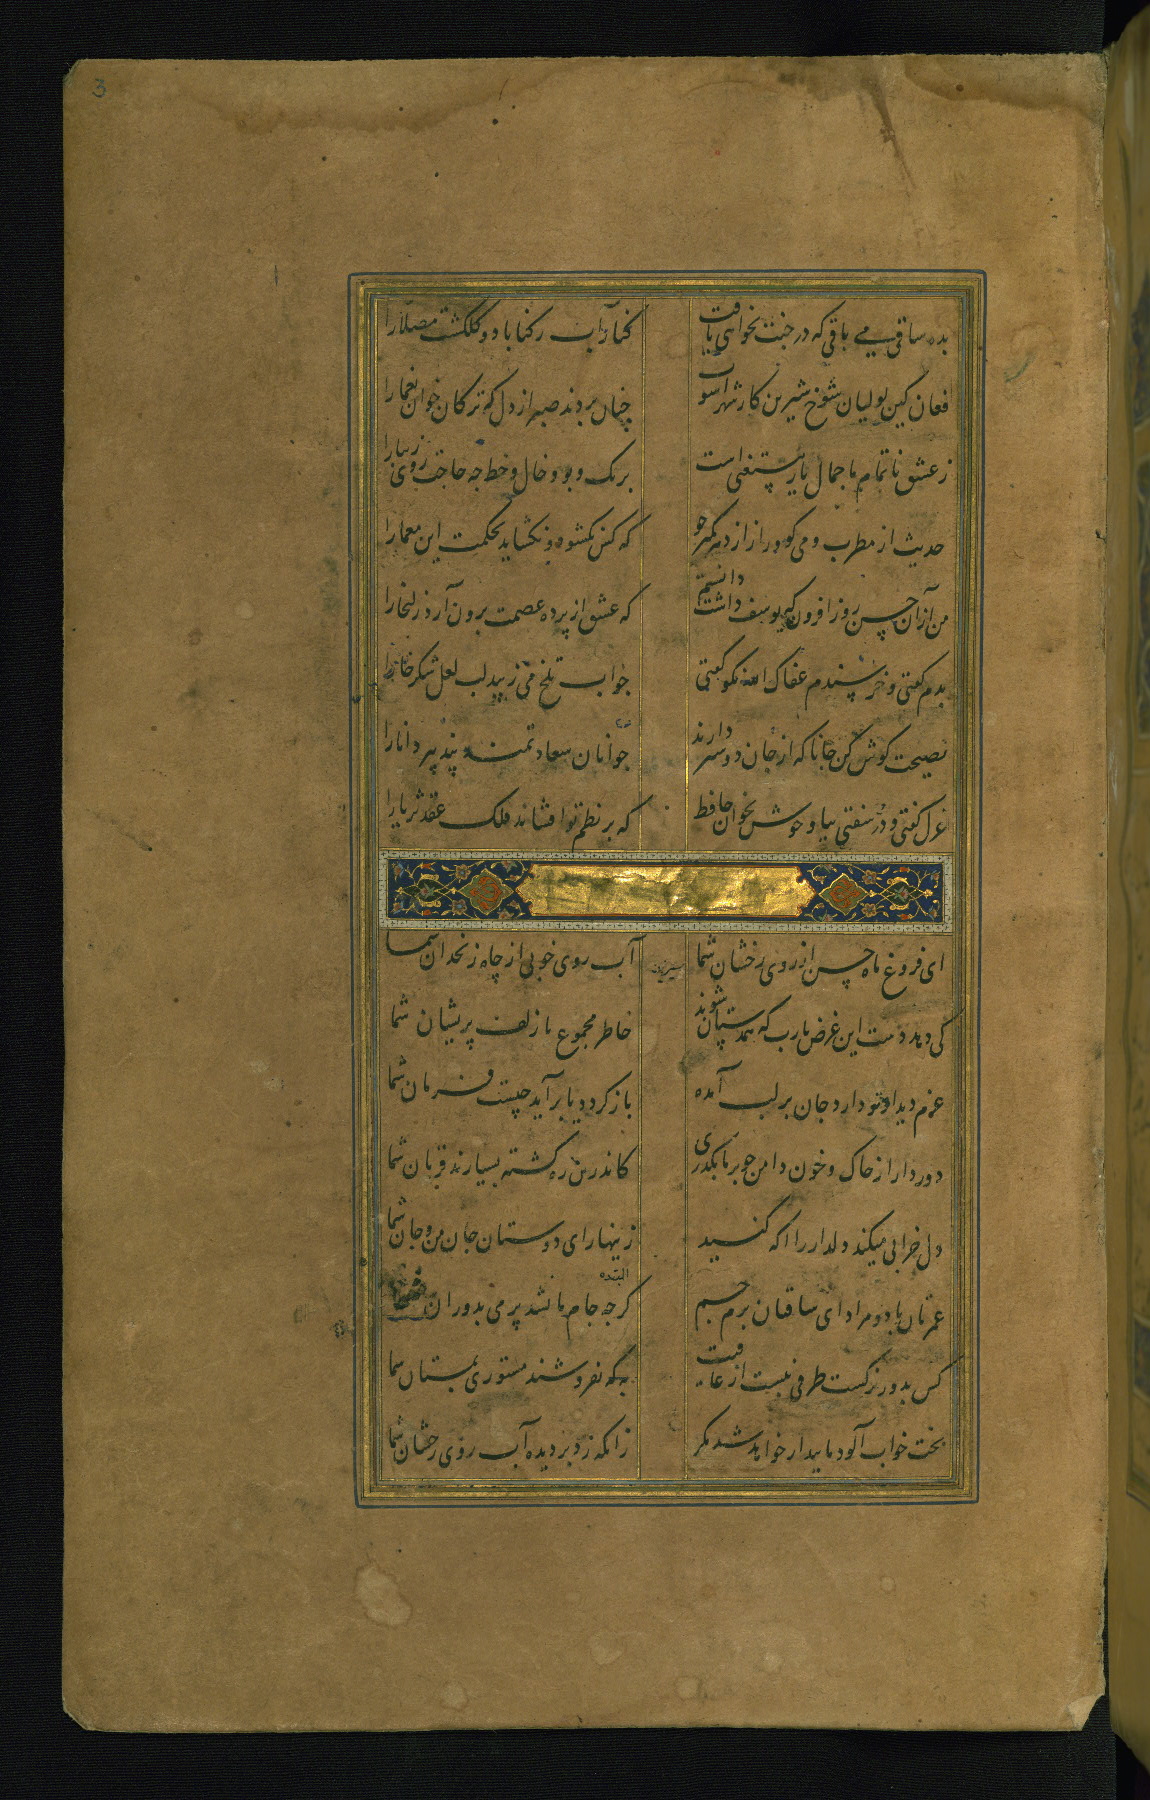 3
بده ساقی می باقی که در جنت نخواهی یافت
کنار آب رکناباد و گلگشت مصلا را
فغان کین لولیان شوخ شیرین کار شهرآشوب
چنان بردند صبر از دل که ترکان خوان یغما را
ز عشق ناتمام ما جمال یار مستغنی است
برنک و بو و خال و خط چه حاجت روی زیبا را
حدیث از مطرب و می کو و راز از دهر کمتر جو
که کس نکشود و نکشاید بحکمت این معما را
من از آن حسن روزافزون که یوسف داشت دانستم
که عشق از پرده عصمت برون آرد زلیخا را
بدم کفتی و خرسندم عفاک الله نکو کفتی
جواب تلخ می زیبد لب لعل شکرخا را
نصیحت کوش کن جانا که از جان دوستر دارند
جوانان سعادتمند پند پیر دانا را
غزل کفتی و در سفتی بیا و خوش بخوان حافظ
که بر نظم تو افشاند فلک عقد ثریا را
ای فروغ ماه حسن از روی رخشان شما
آب روی خوبی از چاه زنخدان شما
کی دهد دست این غرض یارب که همدستان شوند
خاطر مجموع ما زلف پریشان شما
عزم دیدار تو دارد جان بر لب آمده
باز کردد یا برآید چیست فرمان شما
دور دار از خاک و خون دامن چو بر ما بکذری
کاندرین ره کشته بسیارند قربان شما
دل خرابی میکند دلدار را اکه کنید
زینهار ای دوستان جان من و جان شما
عمرتان باد و مراد ای ساقیان بزم جم
کرچه جام ما نشد پر می بدوران شما
کس بدور نرکست طرفی نبست از عافیت
به که نفروشند مستوری بمستان شما
بخت خواب آلود ما بیدار خواهد شد مکر
زانکه زد بر دیده آب روی رخشان شما